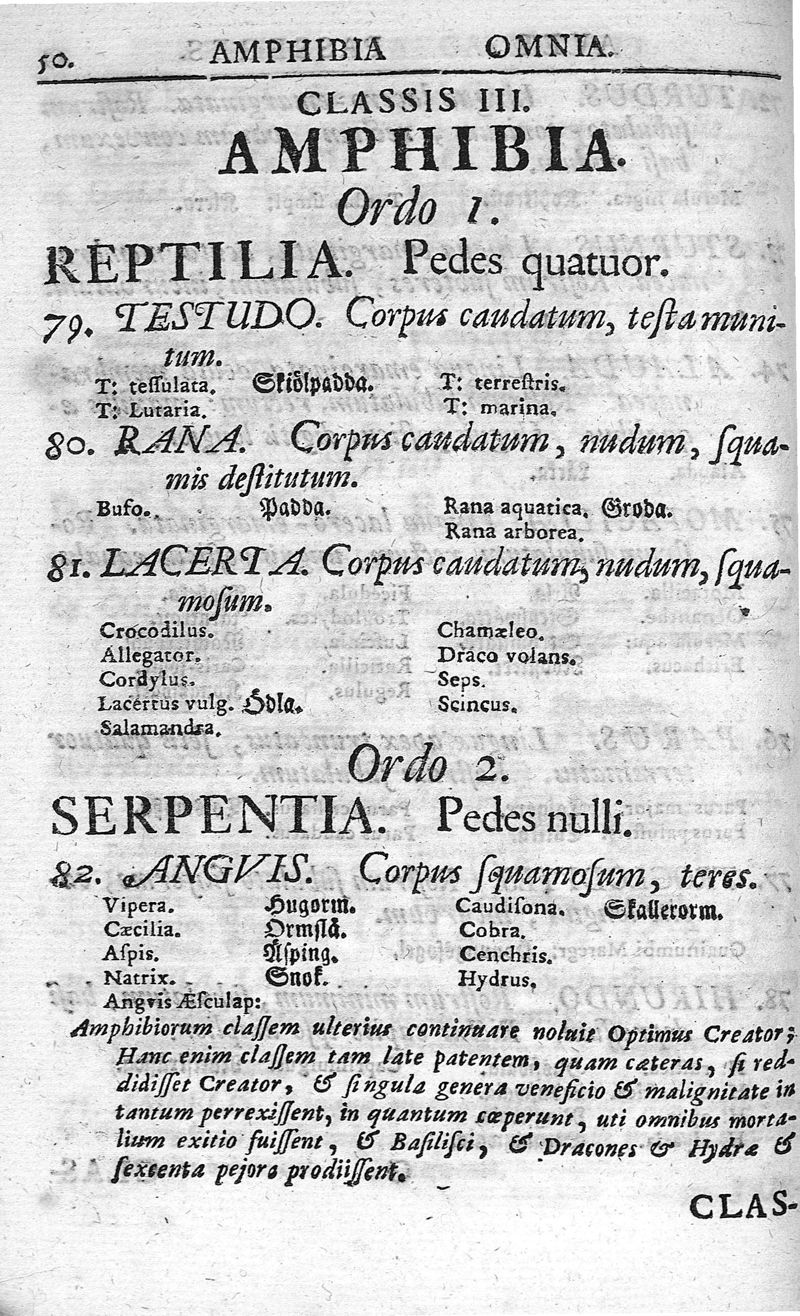 50. AMPHIBIA OMNIA.
CLASSIS III.
AMPHIBIA.
Ordo 1.
REPTILIA. Pedes quatuor.
79. TESTUDO. Corpus caudatum, teſta muni-
tum.
T: teſſulata. Skiölpadda. T: terreſtris.
T: Lutaria. T: marina.
80. RANA. Corpus caudatum, nudum, ſqua-
mis deſtitutum.
Bufo. Padda. Rana aquatica. Groda.
Rana arborea.
81. LACERTA. Corpus caudatum, nudum, ſqua-
moſum.
Crocodilus. Chamæleo.
Allegator. Draco volans.
Cordylus. Seps.
Lacertus vulg. Ödla. Scincus.
Salamandra.
Ordo 2.
SERPENTIA. Pedes nulli.
82. ANGVIS. Corpus ſquamoſum, teres.
Vipera. Hugorm. Caudiſona. Skallerorm.
Cæcilia. Ormſlå. Cobra.
Aſpis. Äſping. Cenchris.
Natrix. Snok. Hydrus.
Angvis Æſculap:
Amphibiorum claſſem ulterius continuare noluit Optimus Creator;
Hanc enim claſſem tam late patentem, quam cæteras, ſi red-
didiſſet Creator, & ſingula genera veneficio & malignitate in
tantum perrexiſſent, in quantum cœperunt, uti omnibus morta-
lium exitio fuiſſent, & Baſiliſci, & Dracones & Hydræ &
ſexcenta pejora prodiiſſent.
CLAS-